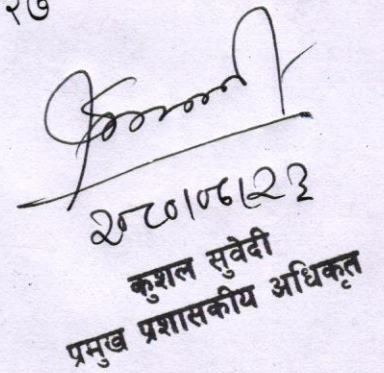 २७
२०८०।०८।२३
कुशल सुवेदी
प्रमुख प्रशासकीय अधिकृत